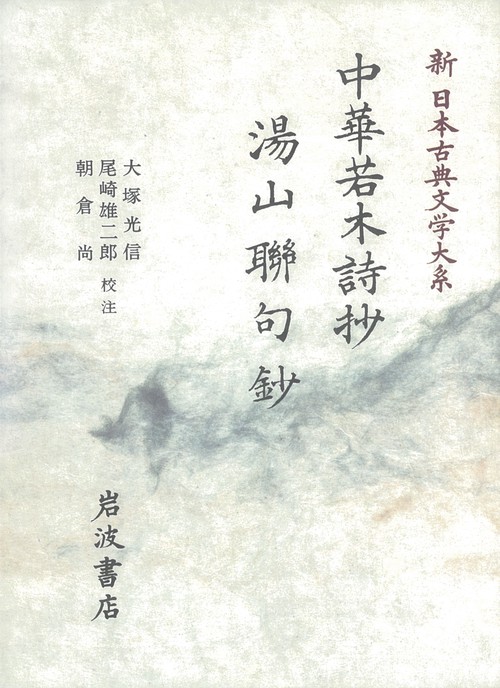 新 日本古典文学大系
中華若木詩抄
湯山聯句鈔
大塚光信
尾崎雄二郎 校注
朝倉尚
岩波書店